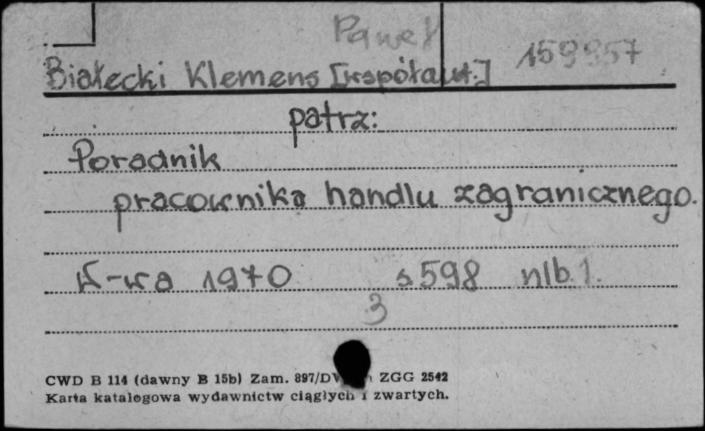 Paweł
Białecki Klemens [współaut.] 159957
patrz:
Poradnik
pracownika handlu zagranicznego.
W-wa 1970 s 598 nlb. 1.
3
CWD B 114 (dawny B 15b) Zam. 897/D ZGG 2542
Karta katalogowa wydawnictw ciągłych i zwartych.